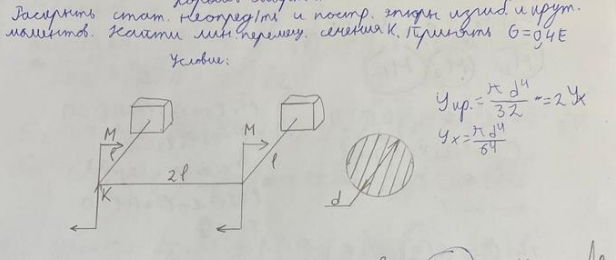 Раскрыть стат. неопред/ть и постр. эпюры изгиб. и крут.
моментов. Найти лин. перемещ. сечения К. Принять G=0,4E
Условие:
M
l
K
2l
M
l
d
Yкр.=πd⁴/32=2Yx
Yx=πd⁴/64